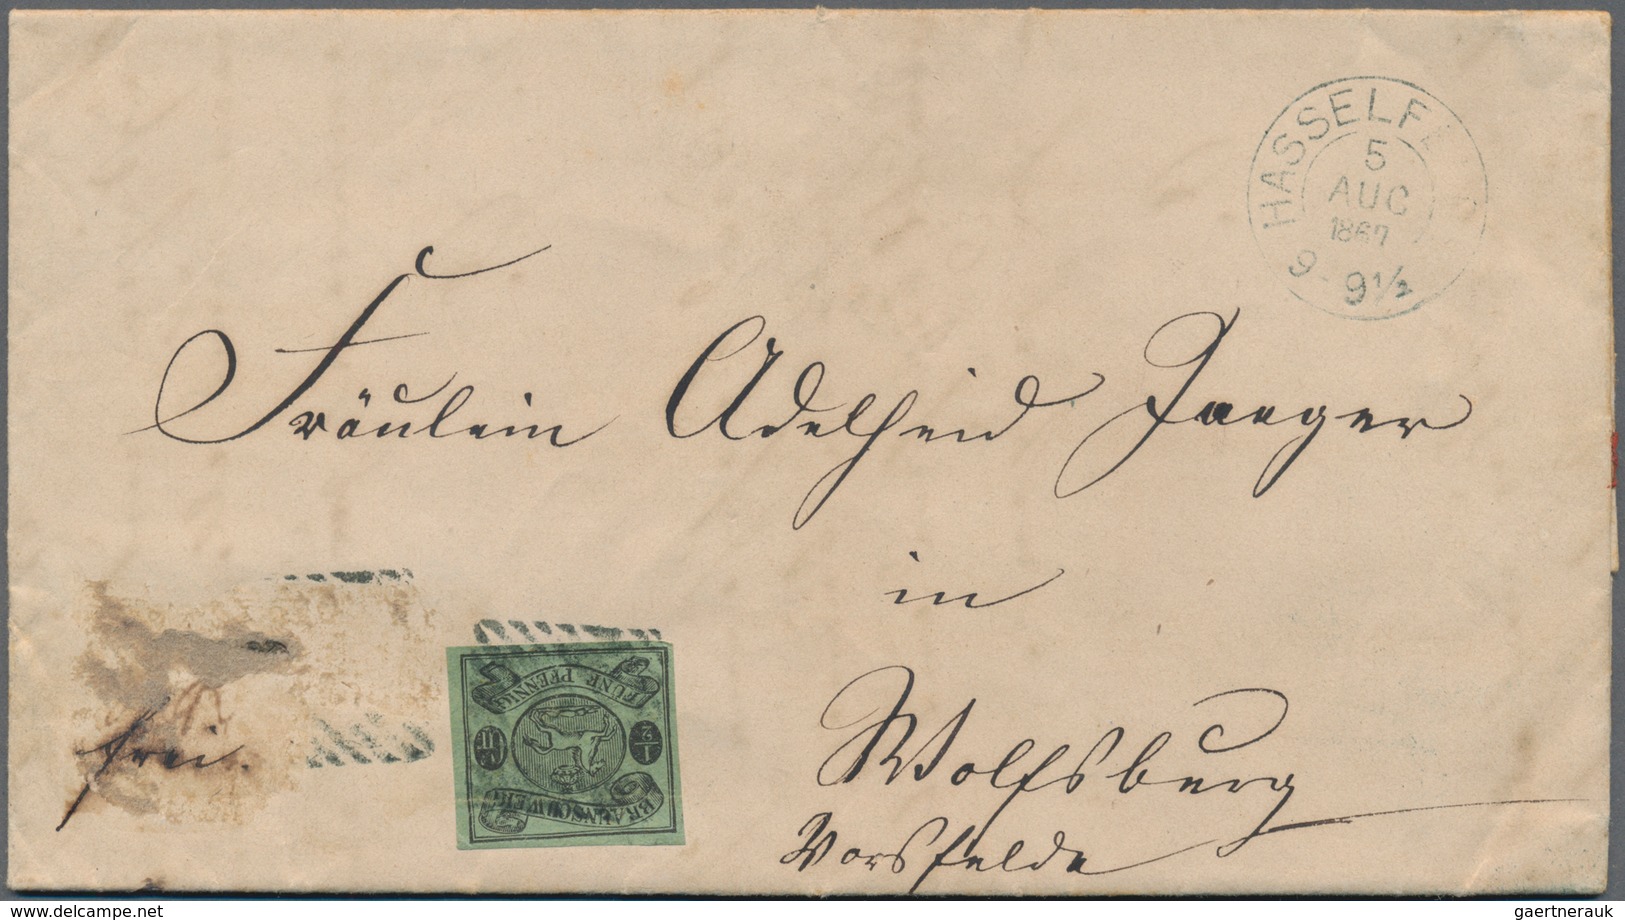 HASSELF
5
AUG
1867
9 - 9 1/2
Fräulein Adelheid Jaeger
in
Wolfsburg
Vorsfelde
frei.
FÜNF PFENNIG
1/2
BRAUNSCHWEIG
delcampe.net
gaertnerauk